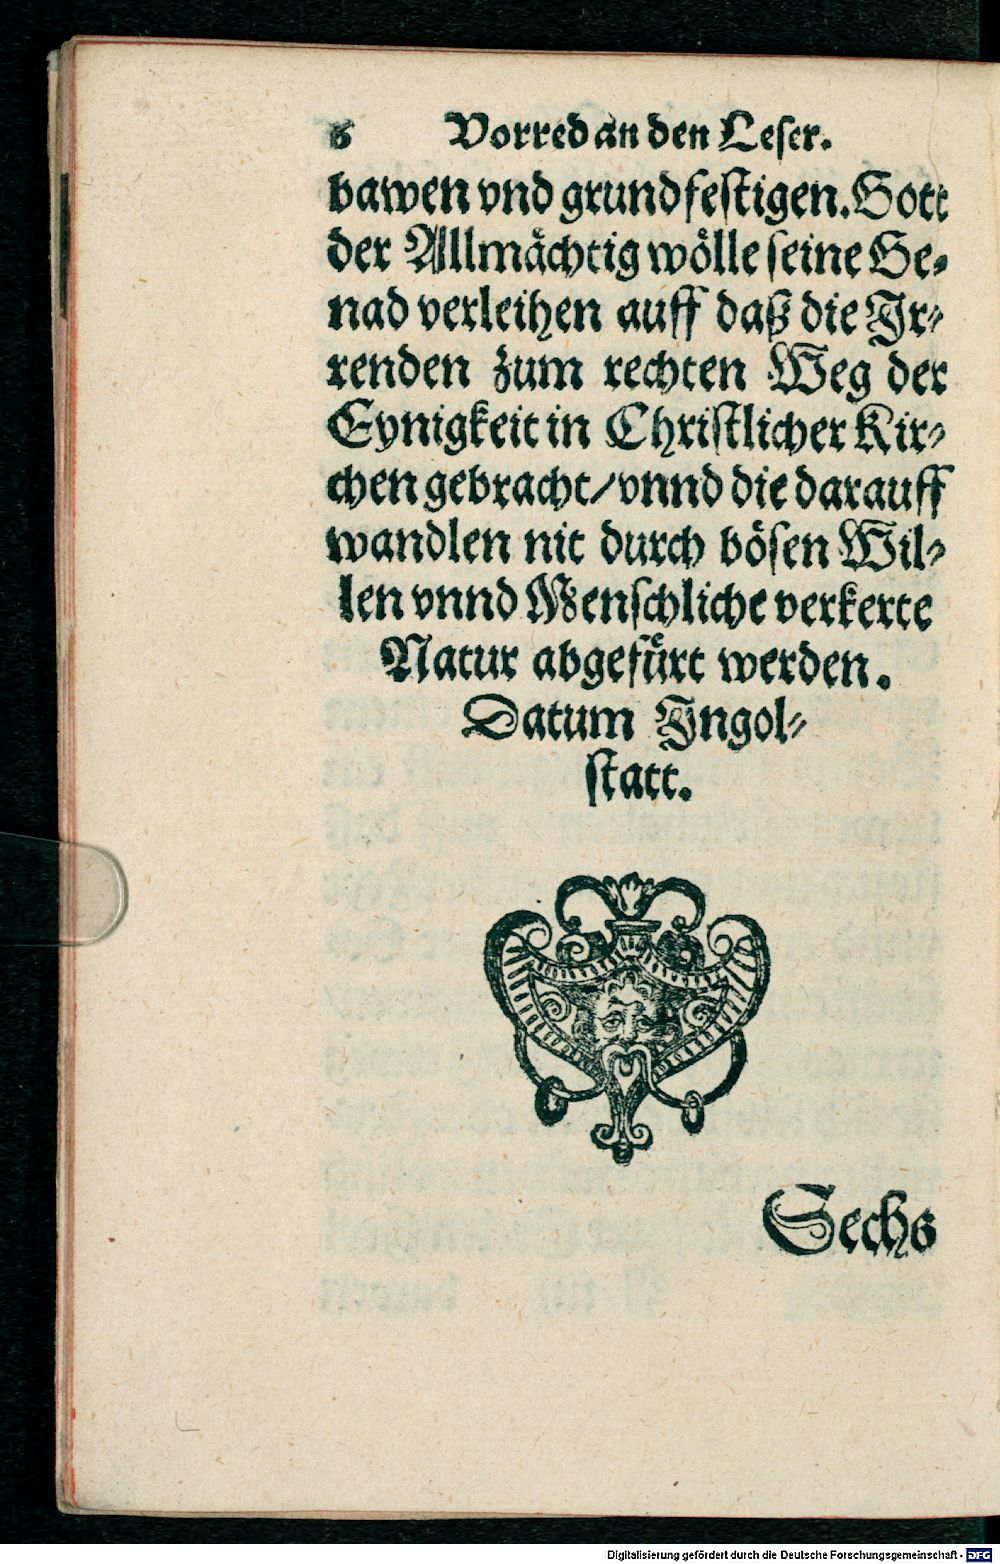 6 Vorred an den Leser.
bawen vnd grundfestigen. Gott
der Allmächtig wölle seine Ge-
nad verleihen auff daß die Ir-
renden zum rechten Weg der
Eynigkeit in Christlicher Kir-
chen gebracht/ vnnd die darauff
wandlen nit durch bösen Wil-
len vnnd Menschliche verkerte
Natur abgefürt werden.
Datum Ingol-
statt.
Sechs
Digitalisierung gefördert durch die Deutsche Forschungsgemeinschaft - DFG